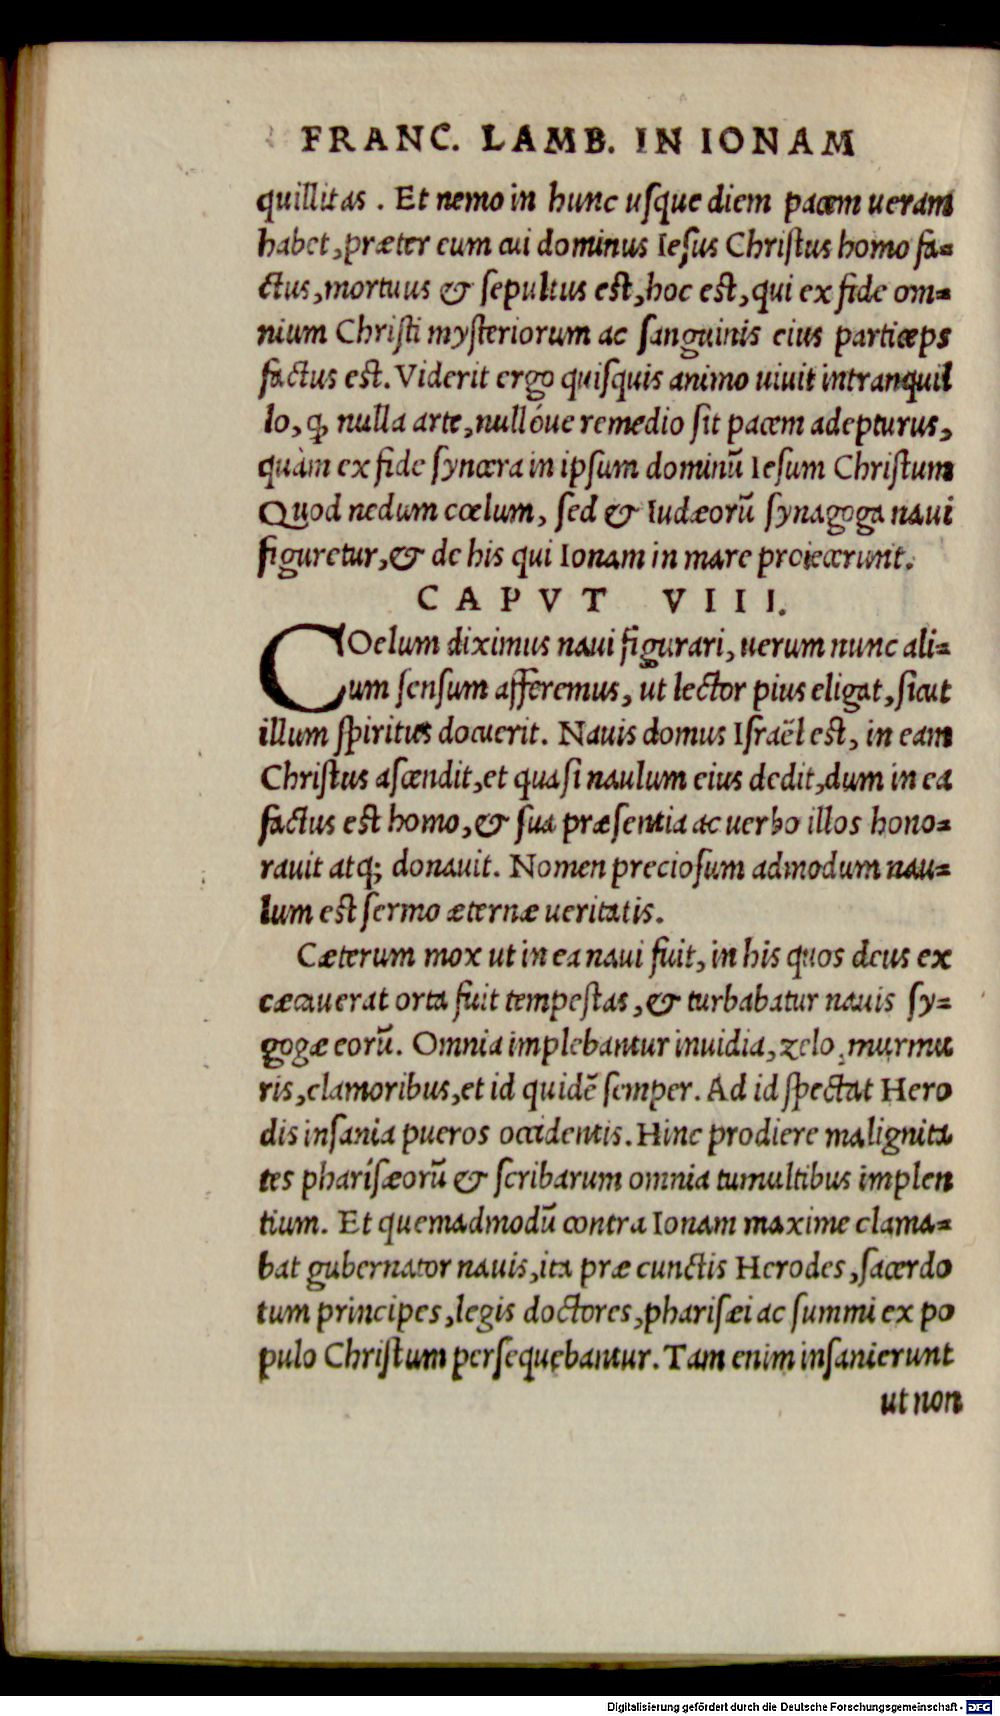 FRANC. LAMB. IN IONAM
quillitas . Et nemo in hunc uſque diem pacem ueram
habet, præter eum cui dominus Ieſus Chriſtus homo fa=
ctus, mortuus & ſepultus eſt, hoc eſt, qui ex fide om=
nium Chriſti myſteriorum ac ſanguinis eius particeps
factus eſt. Viderit ergo quiſquis animo uiuit intranquil
lo, ꝙ nulla arte, nullóue remedio ſit pacem adepturus,
quàm ex fide ſyncera in ipſum dominū Ieſum Chriſtum
Quod nedum cœlum, ſed & Iudæorū ſynagoga naui
figuretur, & de his qui Ionam in mare proiecerunt.
CAPVT VIII.
COelum diximus naui figurari, uerum nunc ali=
um ſenſum afferemus, ut lector pius eligat, ſicut
illum ſpiritus docuerit. Nauis domus Iſraẽl eſt, in eam
Chriſtus aſcendit, et quaſi naulum eius dedit, dum in ea
factus eſt homo, & ſua præſentia ac uerbo illos hono=
rauit atq; donauit. Nomen precioſum admodum nau=
lum eſt ſermo æternæ ueritatis.
Cæterum mox ut in ea naui fuit, in his quos deus ex
cæcauerat orta fuit tempeſtas, & turbabatur nauis ſy=
gogæ eorū. Omnia implebantur inuidia, zelo, murmu
ris, clamoribus, et id quidē ſemper. Ad id ſpectat Hero
dis inſania pueros occidentis. Hinc prodiere malignita
tes phariſæorū & ſcribarum omnia tumultibus implen
tium. Et quemadmodū contra Ionam maxime clama=
bat gubernator nauis, ita præ cunctis Herodes, ſacerdo
tum principes, legis doctores, phariſæi ac ſummi ex po
pulo Chriſtum perſequebantur. Tam enim inſanierunt
ut non
Digitalisierung gefördert durch die Deutsche Forschungsgemeinschaft - DFG